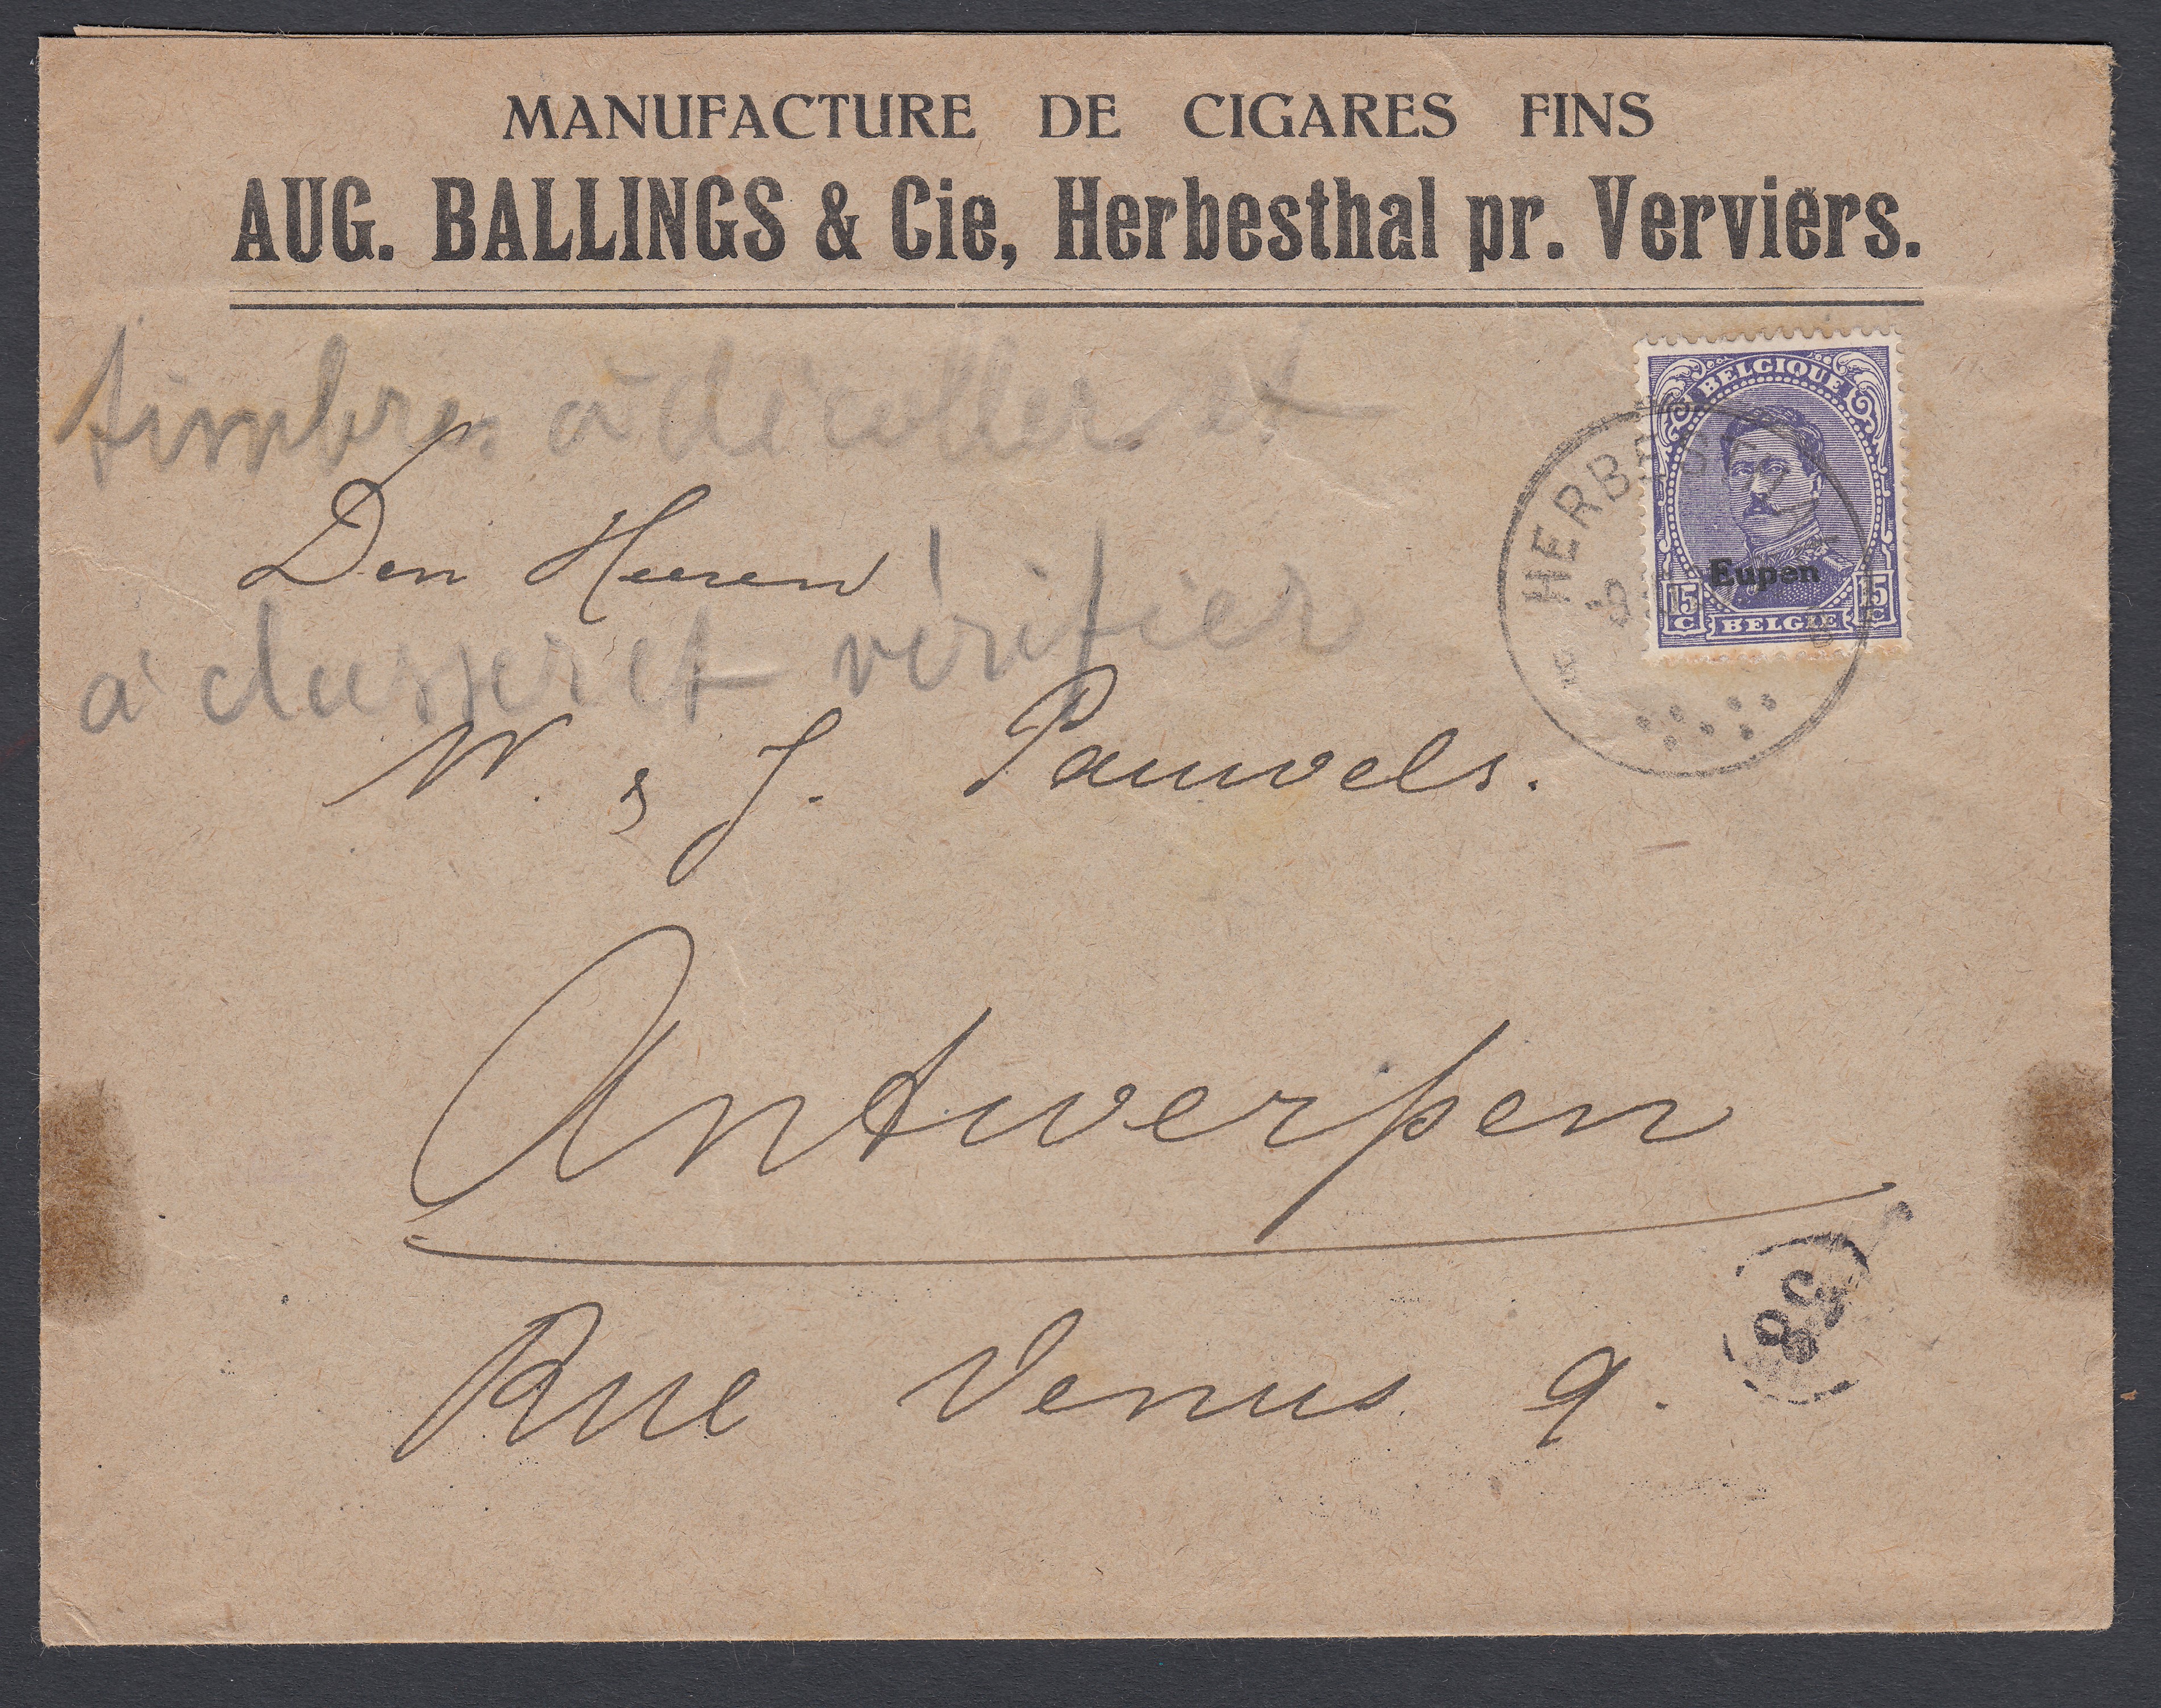 MANUFACTURE DE CIGARES FINS
AUG. BALLINGS & Cie, Herbesthal pr. Verviers.
timbres à décoller et
à classer et vérifier
BELGIQUE
Eupen
15 C 15 C
BELGIE
HERBEST
Den Heeren
W. & J. Pauwels.
Antwerpen
Rue Venus 9.